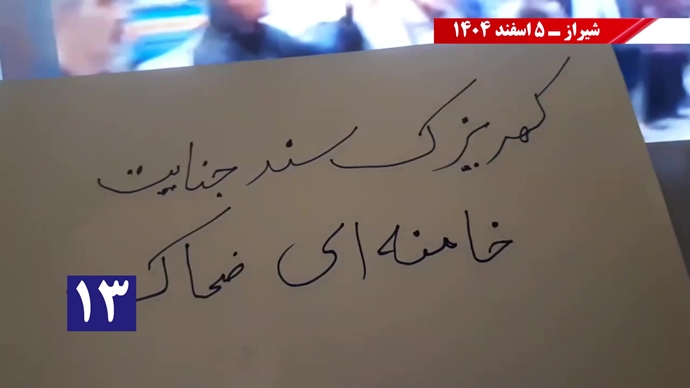 شیراز ــ ۵ اسفند ۱۴۰۴
کهریزک سند جنایت
خامنه ای ضحاک
۱۳